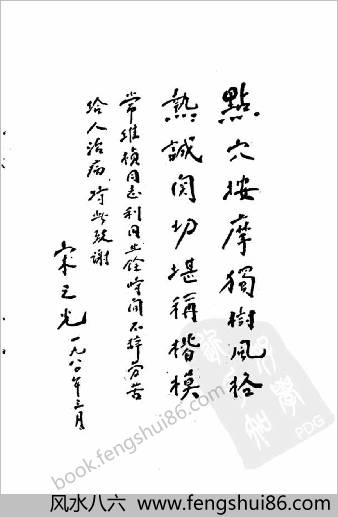 點穴按摩獨樹風格
熱誠関切堪稱楷模
常维桢同志利用业餘時间不辞劳苦
给人治病 特此致谢
宋之光 一九八〇年三月
book.fengshui86.com
PDG
风水八六 www.fengshui86.com